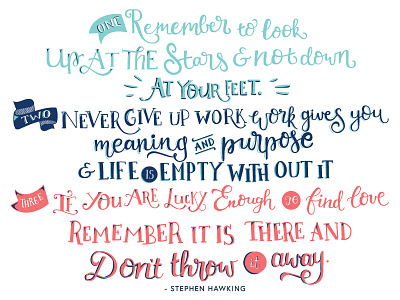 ONE Remember to look
Up At The Stars & not down
At Your Feet.
TWO Never give up work work gives you
meaning AND purpose
& Life is Empty with out it
THREE If You Are Lucky Enough to find love
Remember it is There and
Don't throw it away.
- STEPHEN HAWKING